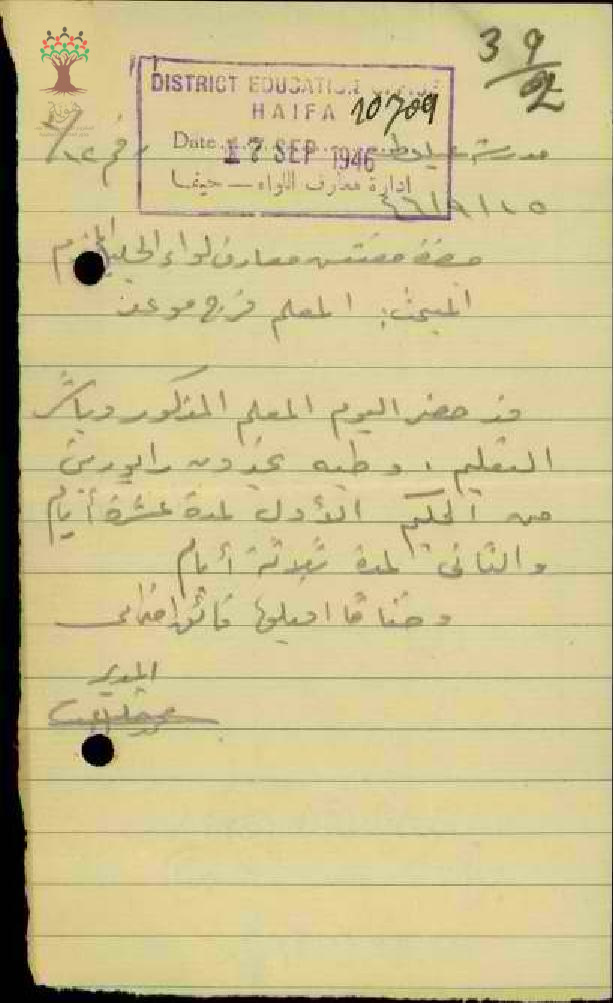 39/2
DISTRICT EDUCATION OFFICE
HAIFA 10709
Date 17 SEP 1946
ادارة معارف اللواء — حيفا
مدرسة عيلوط
٤٦/٩/١٥
حضرة مفتش معارف لواء الجليل المحترم
المبحث: المعلم فرج
قد حضر اليوم المعلم المذكور وباشر
التعليم، وطيه تجدون رابورين
من الحكيم الأول لمدة عشرة أيام
والثاني لمدة ثلاثة أيام
وختاما اقبلوا فائق احترامي
المدير